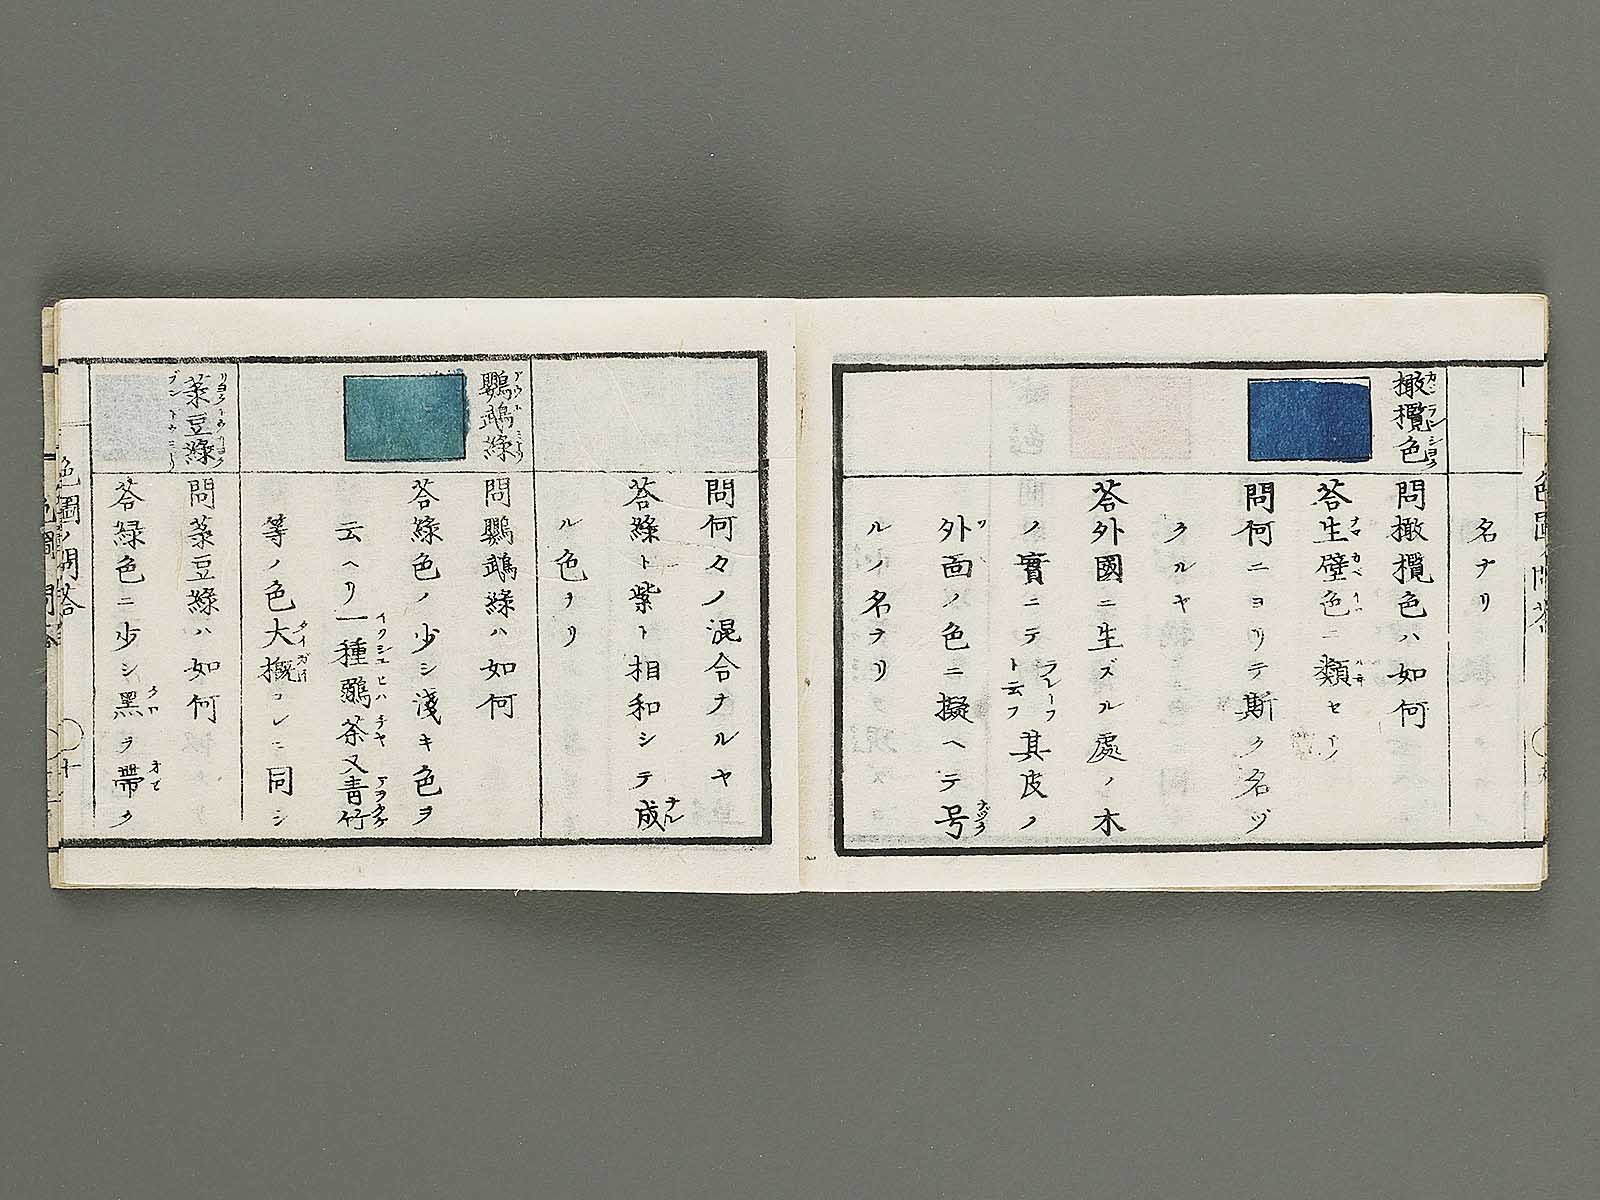 名ナリ
橄欖色
問橄欖色ハ如何
荅生壁色ニ類セリ
問何ニヨリテ斯ク名ヅ
クルヤ
荅外國ニ生ズル處ノ木
ノ實ニテ ト云フ其皮ノ
外面ノ色ニ擬ヘテ号
ルノ名ナリ
問何々ノ混合ナルヤ
荅綠ト紫ト相和シテ成
ル色ナリ
鸚鵡綠
問鸚鵡綠ハ如何
荅綠色ノ少シ淺キ色ヲ
云ヘリ一種鶸茶又青竹
等ノ色大概コレニ同シ
菉豆綠
問菉豆綠ハ如何
荅緑色ニ少シ黒ヲ帶ク
色圖ノ問荅
十